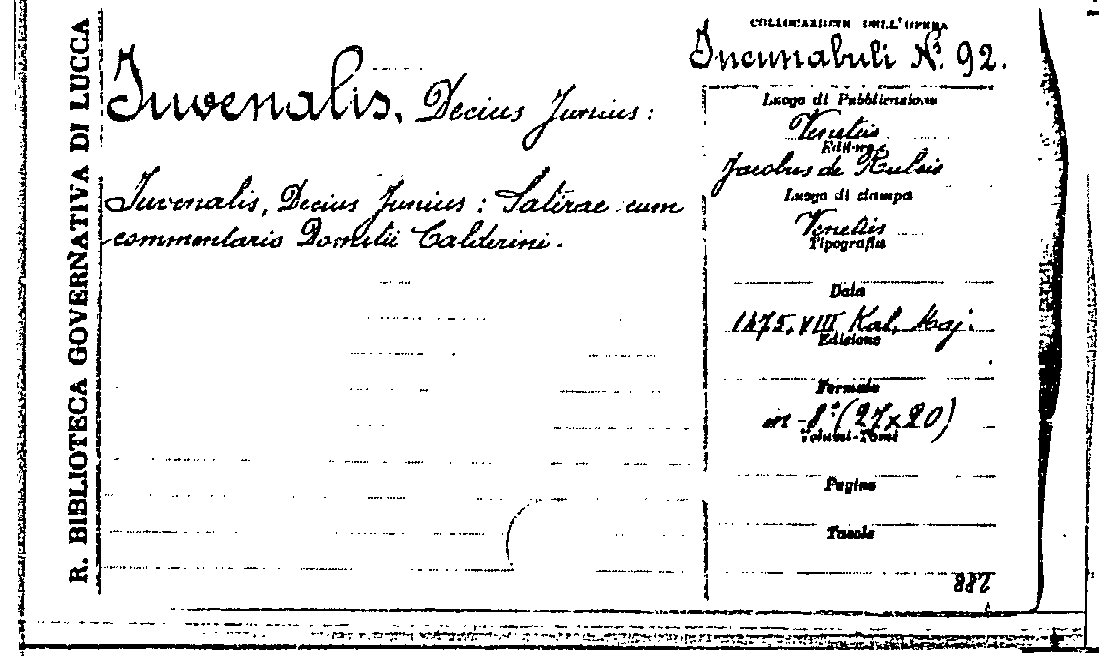 R. BIBLIOTECA GOVERNATIVA DI LUCCA
Juvenalis, Decius Junius:
Juvenalis, Decius Junius: Satirae cum
commentaris Domitii Calderini.
COLLOCAZIONE DELL'OPERA
Incunabuli N.º 92.
Luogo di Pubblicazione
Venetiis
Editore
Jacobus de Rubeis
Luogo di stampa
Venetiis
Tipografia
Data
1475, VIII Kal. Maj.
Edizione
Formato
in - 8º (27x20)
Volumi-Tomi
Pagine
Tavole